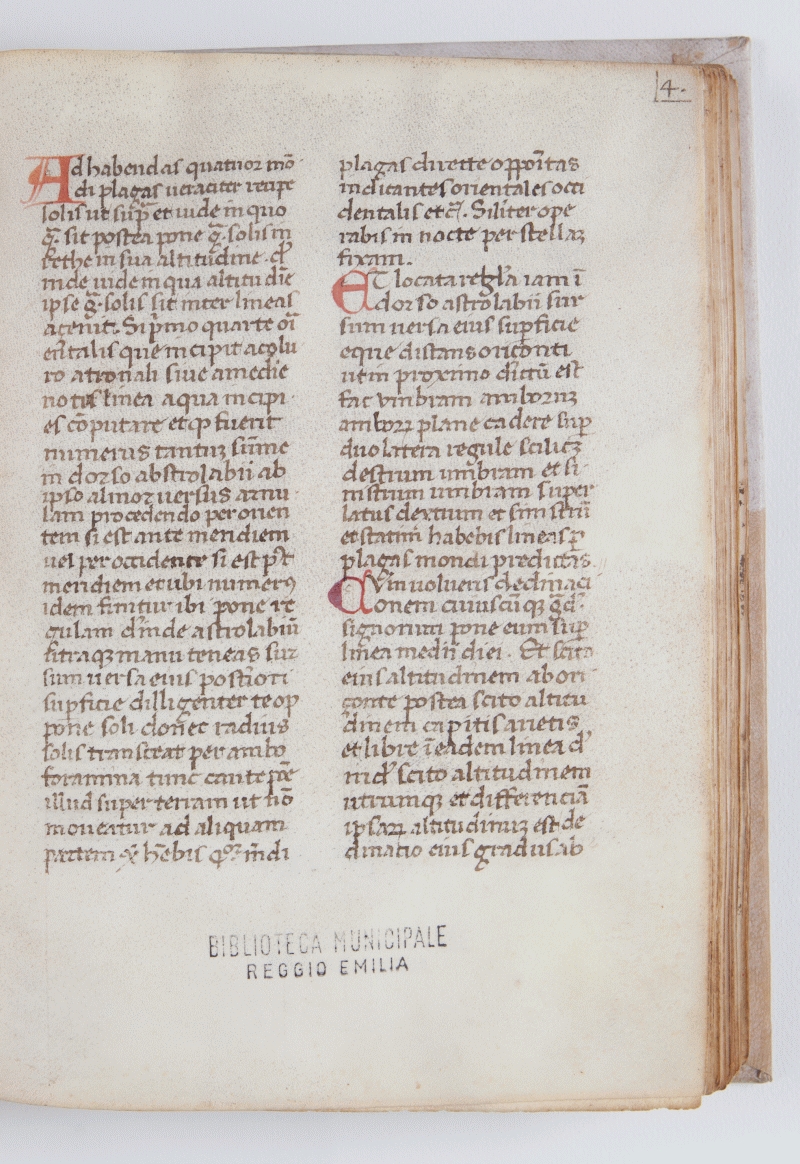 4.
Ad habendas quatuor mō
di plagas ueraciter recipe
solis ut sup̄ et uide in quo
g̃. sit postea pone g̃. solis in
rethe in sua altitudine
inde uide in qua altitudīe
ipse g̃. solis sit inter lineas
acenit. Si p̄mo quarte oī
ētalis que incipit a colu
ro
not linea a qua incipi
es cōputare et qp fuerit
numerus tantuꝫ sūme
in dorso abstrolabii ab
ipso almoꝝ uersus armu
lam procedendo per orien
tem si est ante meridiem
uel per occidente si est pꝰt
meridiem et ubi numerꝰ
idem finitur ibi pone re
gulam d̄inde astrolabiū
fitraqꝫ manu teneas sur
sum uersa eius post̄iori
sup̄ficie dilligenter te op
pone soli donec radius
solis transeat per ambo
foramina tunc caute
illud super terram ut nō
moueatur ad aliquam
partem hēbis m̄di
plagas dirette oppōitas
indicantes orientales occi
dentalis etc̄. Siliter ope
rabis in nocte per stellaꝫ
fixam.
Et locata regl̄a iam ī
dorso astrolabii sur
sum uersa eius sup̄ficie
eque distans oriconti
item proximo dictū est
fac vmbram amborꝫ
amborꝝ plane cadere sup̄
duo latera regule scilicꝫ
destrum umbram et si
nistrum umbram super
latus dextrum et sinistrū
et statim habebis lineas p̄
plagas mondi predictas.
Cvm uolueris declinaci
onem cuiuscūqꝫ g̃d.
signorum pone eum sup̄
linea medii diei. Et scito
eius altitudinem ab ori
çonte postea scito altitu
dinem capitis arietis
et libre ī eadem linea
scito altitudinem
utrumqꝫ et differenciā
ipsaꝝ altitudinuꝫ est de
clinatio eius gradus ab
BIBLIOTECA MUNICIPALE
REGGIO EMILIA